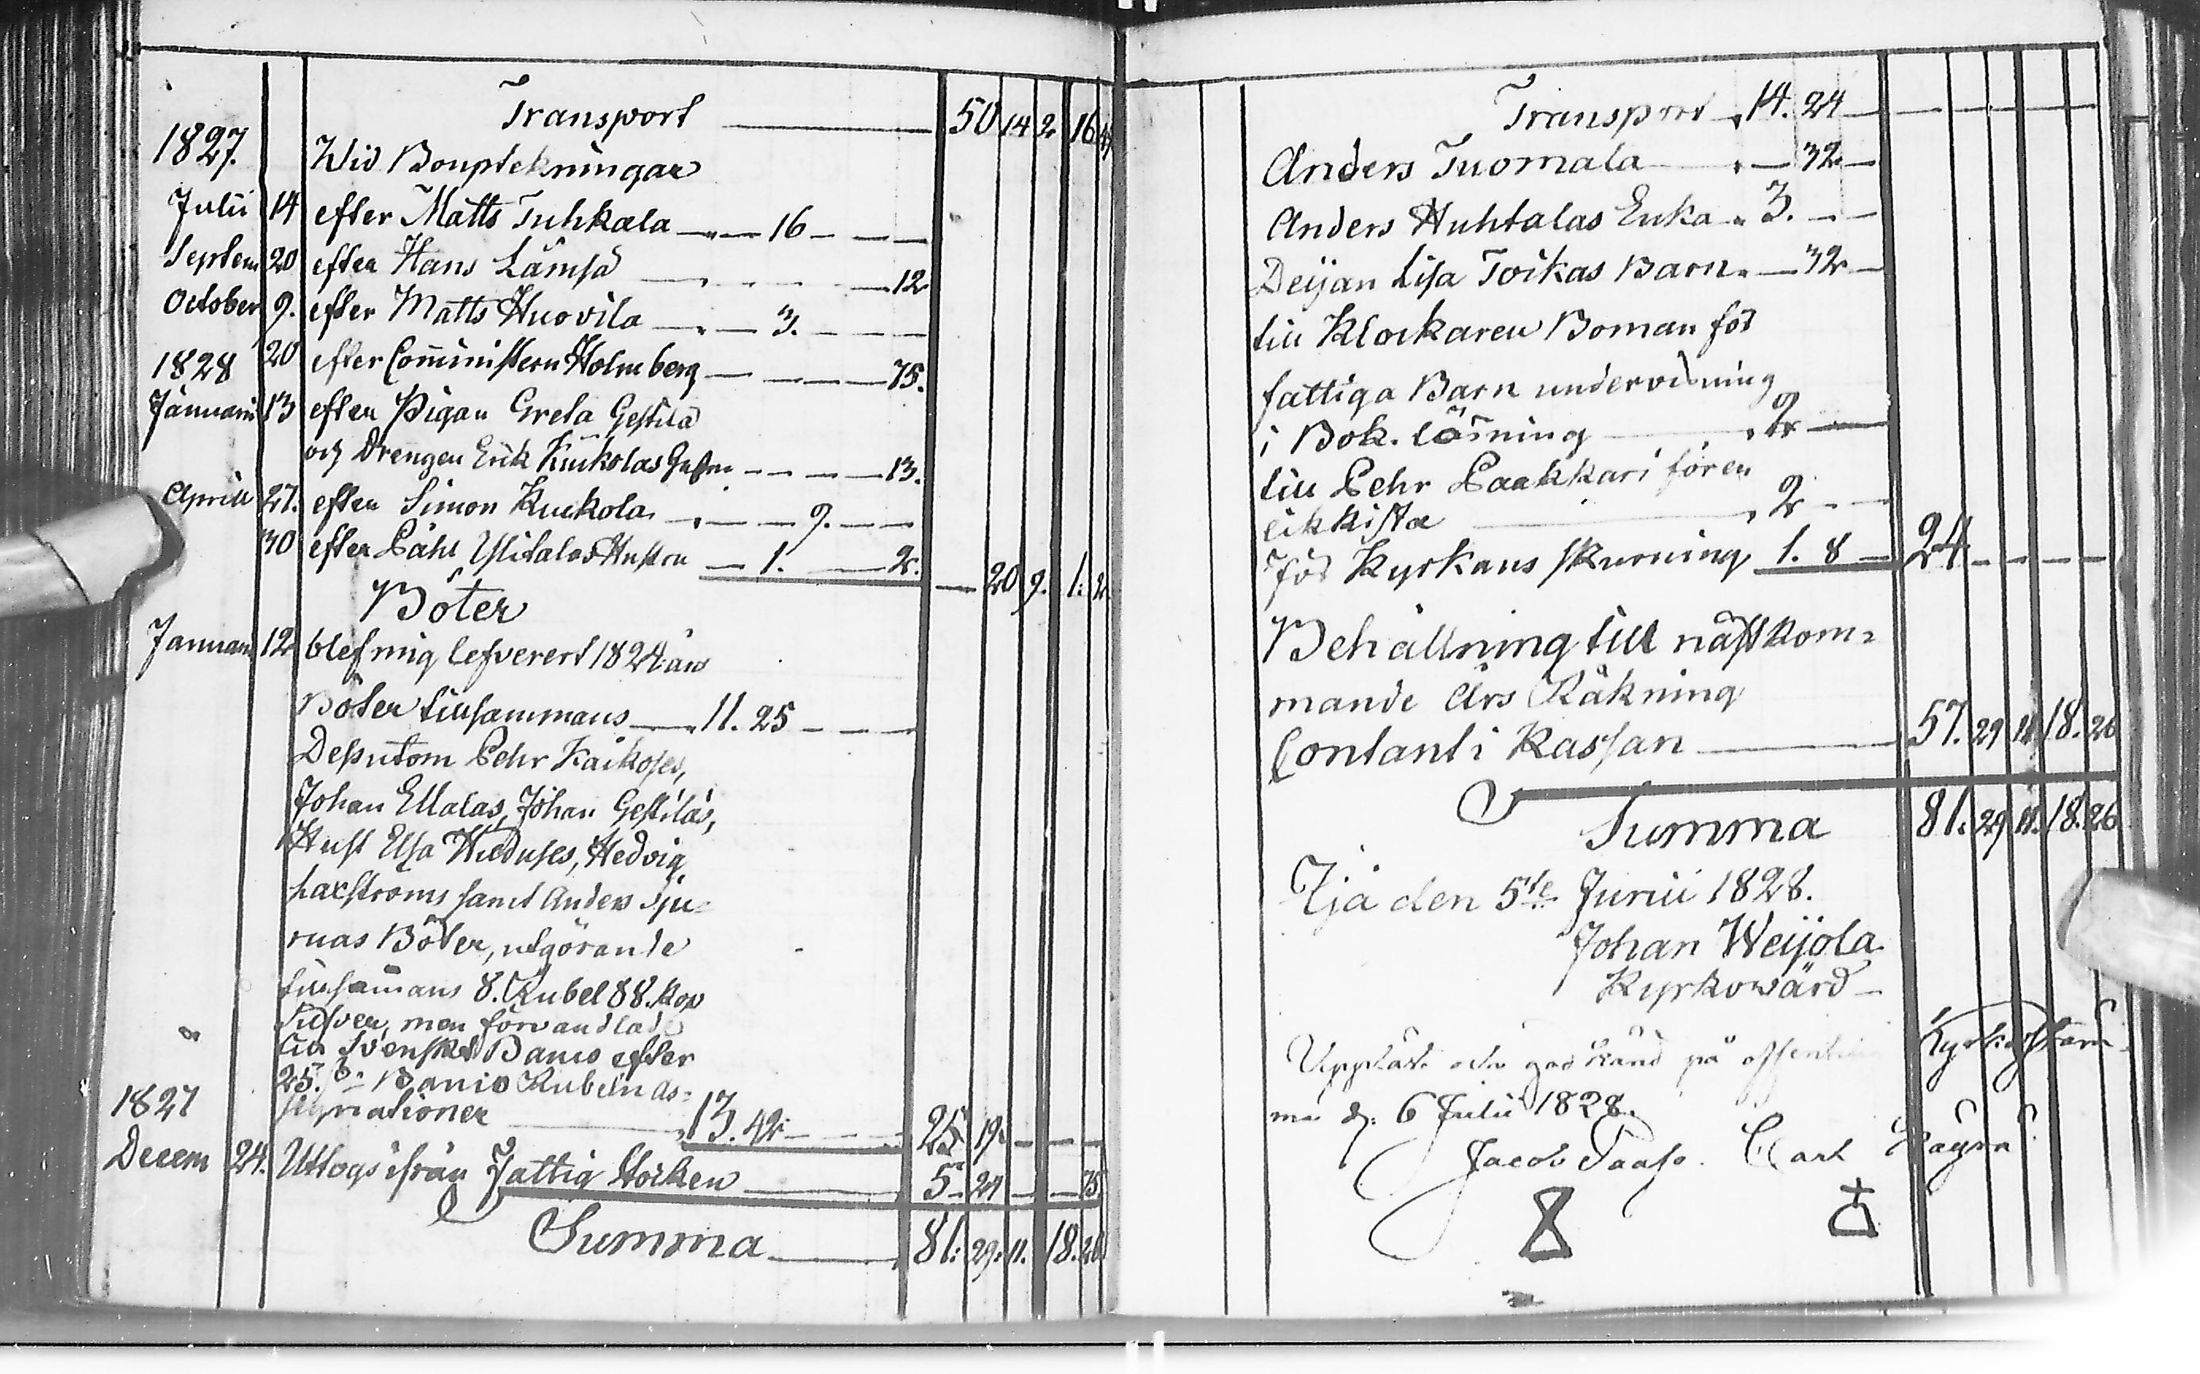 Transport — 50 14 2 16
1827. Wid Bouptekningar
Julii 14 efter Matts Tuhkala — 16 —
Septem 20 efter Hans Lämsä — 12
October 9. efter Matts Huovila — 3. —
20 efter Comministern Holmberg — 75.
1828
Januarii 13 efter Pigan Greta Gestilä
och Drengen Erik Kuckolas — 13.
Aprill 27. efter Simon Kuckola — 9. —
30 efter Påhl Ylitalos Hustru — 1. — 2. — 20 9. 1. 2
Böter
Januarii 12 blef mig lefverert 1824 års
Böter tillsammans — 11. 25 —
Dessutom Pehr Kaikoses,
Johan Ellalas, Johan Gestiläs,
Hust Elsa Hieduses, Hedvig
Laxströms samt Anders Sju-
ruas Böter, utgörande
tillsamans 8. Rubel 88. kop
Silfver, men förvandlade
till Svenskt Banco efter
25. s. Banco Rubeln as-
signationer — 13. 42 — 25 19 —
1827
Decem 24. Uttogs ifrån Fattig Stocken — 5 — 24 — 75
Summa — 81. 29. 11. 18. 26
Transport 14. 24 —
Anders Tuomala — 32 —
Anders Huhtalas Enka 3. —
Deijan Lisa Toikas Barn — 32 —
till Klockaren Boman för
fattiga Barn undervisning
i Bok. läsning — 2 —
till Pehr Paakkari för en
likkista — 2 —
För Kyrkans skurning 1. 8 — 24 —
Behållning till nästkom-
mande Års Räkning
Contant i Kassan — 57. 29 11 18. 26
Summa 81. 29 11. 18. 26
Ijå den 5te Junii 1828.
Johan Weijola
Kyrkowärd —
Uppläst och godkänd på offentlig Kyrkostäm-
ma d. 6 Julii 1828.
Jacob Paaso. Carl